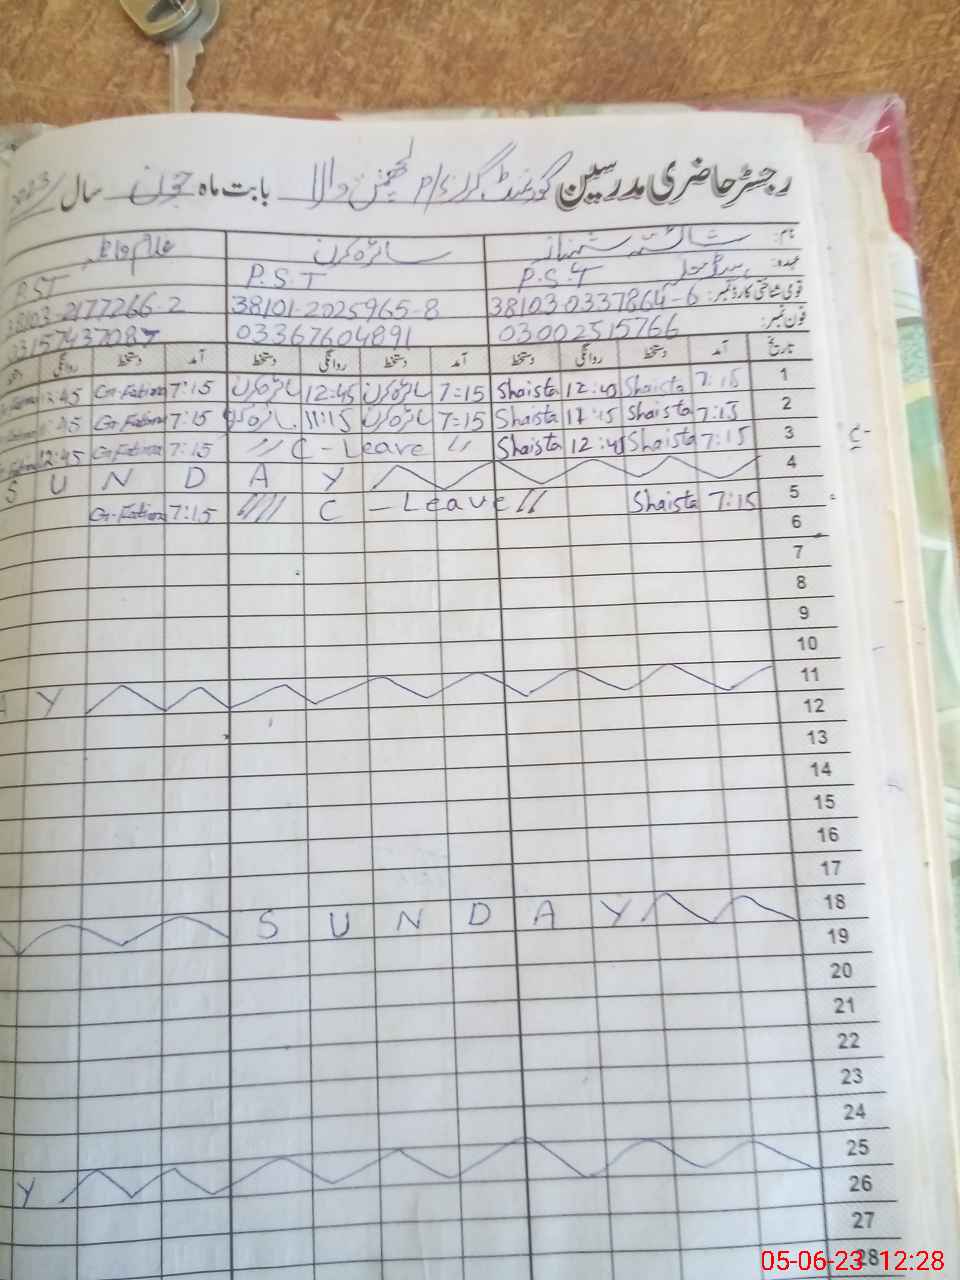 رجسٹر حاضری مدرسین گورنمنٹ گرلز p/s لچھمن والا بابت ماہ جون سال 2023
نام: شائستہ شہناز سائرہ کرن غلام فاطمہ
عہدہ: P.S.T P.S.T P.ST
قومی شناختی کارڈ نمبر: 38103-0337864-6 38101-2025965-8 38103-2177266-2
فون نمبر: 03002515766 03367604891 03157437087
تاریخ آمد دستخط روانگی دستخط آمد دستخط روانگی دستخط آمد دستخط روانگی
1 7:15 Shaista 12:45 Shaista 7=15 سائرہ کرن 12:45 سائرہ کرن 7:15 G-Fatima 12:45
2 7:15 Shaista 11:15 Shaista 7=15 سائرہ کرن 11:15 سائرہ کرن 7:15 G-Fatima
3 7:15 Shaista 12:45 Shaista // C - Leave // 7:15 G-Fatima 12:45
4 S U N D A Y
5 7:15 Shaista //// C - Leave // 7:15 G-Fatima
6
7
8
9
10
11 A Y
12
13
14
15
16
17
18 S U N D A Y
19
20
21
22
23
24
25 Y
26
27
28
05-06-23 12:28